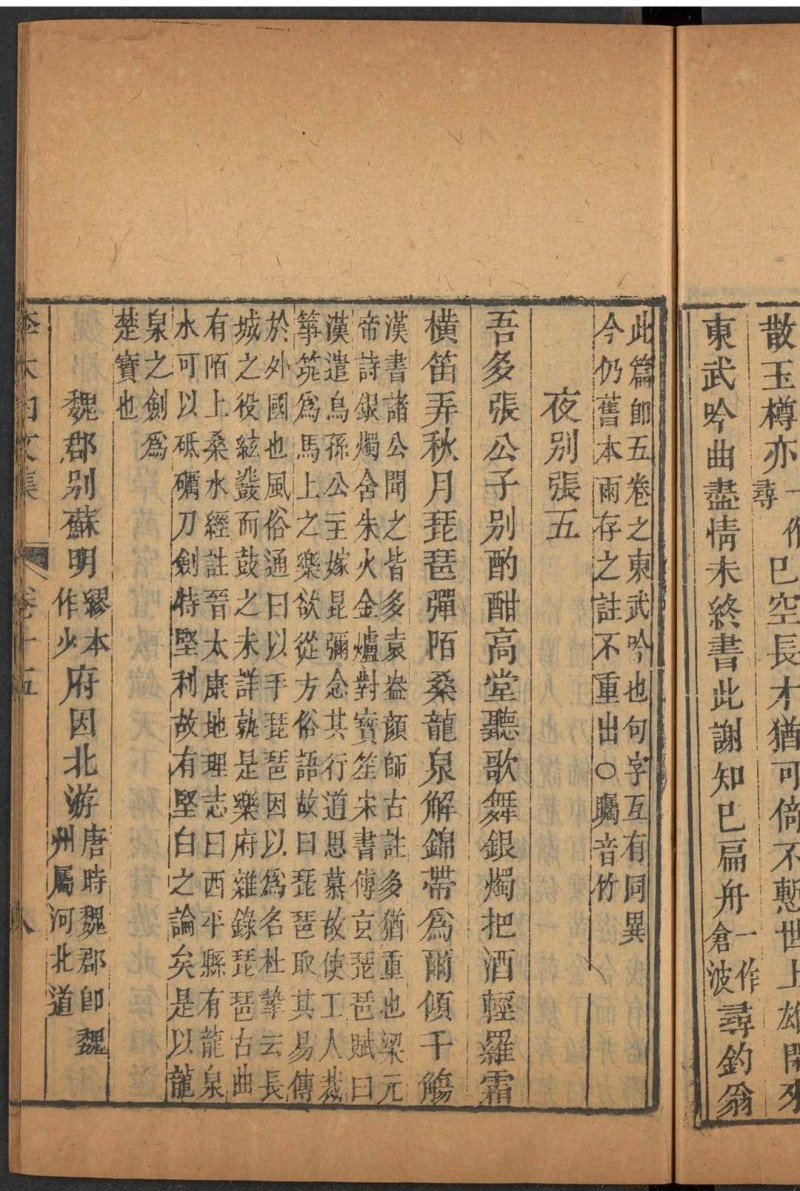 散玉樽亦一作尋已空長才猶可倚不慙世上雄閒來
東武吟曲盡情未終書此謝知己扁舟一作倉波尋釣翁
此篇即五卷之東武吟也句字互有同異
今仍舊本兩存之註不重出○矚音竹
夜別張五
吾多張公子別酌酣高堂聽歌舞銀燭把酒輕羅霜
橫笛弄秋月琵琶彈陌桑龍泉解錦帶爲爾傾千觴
漢書諸公聞之皆多袁盎顏師古註多猶重也梁元
帝詩銀燭含朱火金爐對寶笙宋書傅玄琵琶賦曰
漢遣烏孫公主嫁昆彌念其行道思慕故使工人裁
箏筑爲馬上之樂欲從方俗語故曰琵琶取其易傳
於外國也風俗通曰以手琵琶因以爲名杜摯云長
城之役絃鼗而鼓之未詳孰是樂府雜錄琵琶古曲
有陌上桑水經註晉太康地理志曰西平縣有龍泉
水可以砥礪刀劍特堅利故有堅白之論矣是以龍
泉之劍爲
楚寶也
魏郡別蘇明繆本作少府因北游唐時魏郡即魏州屬河北道
李太白文集 卷十五 八